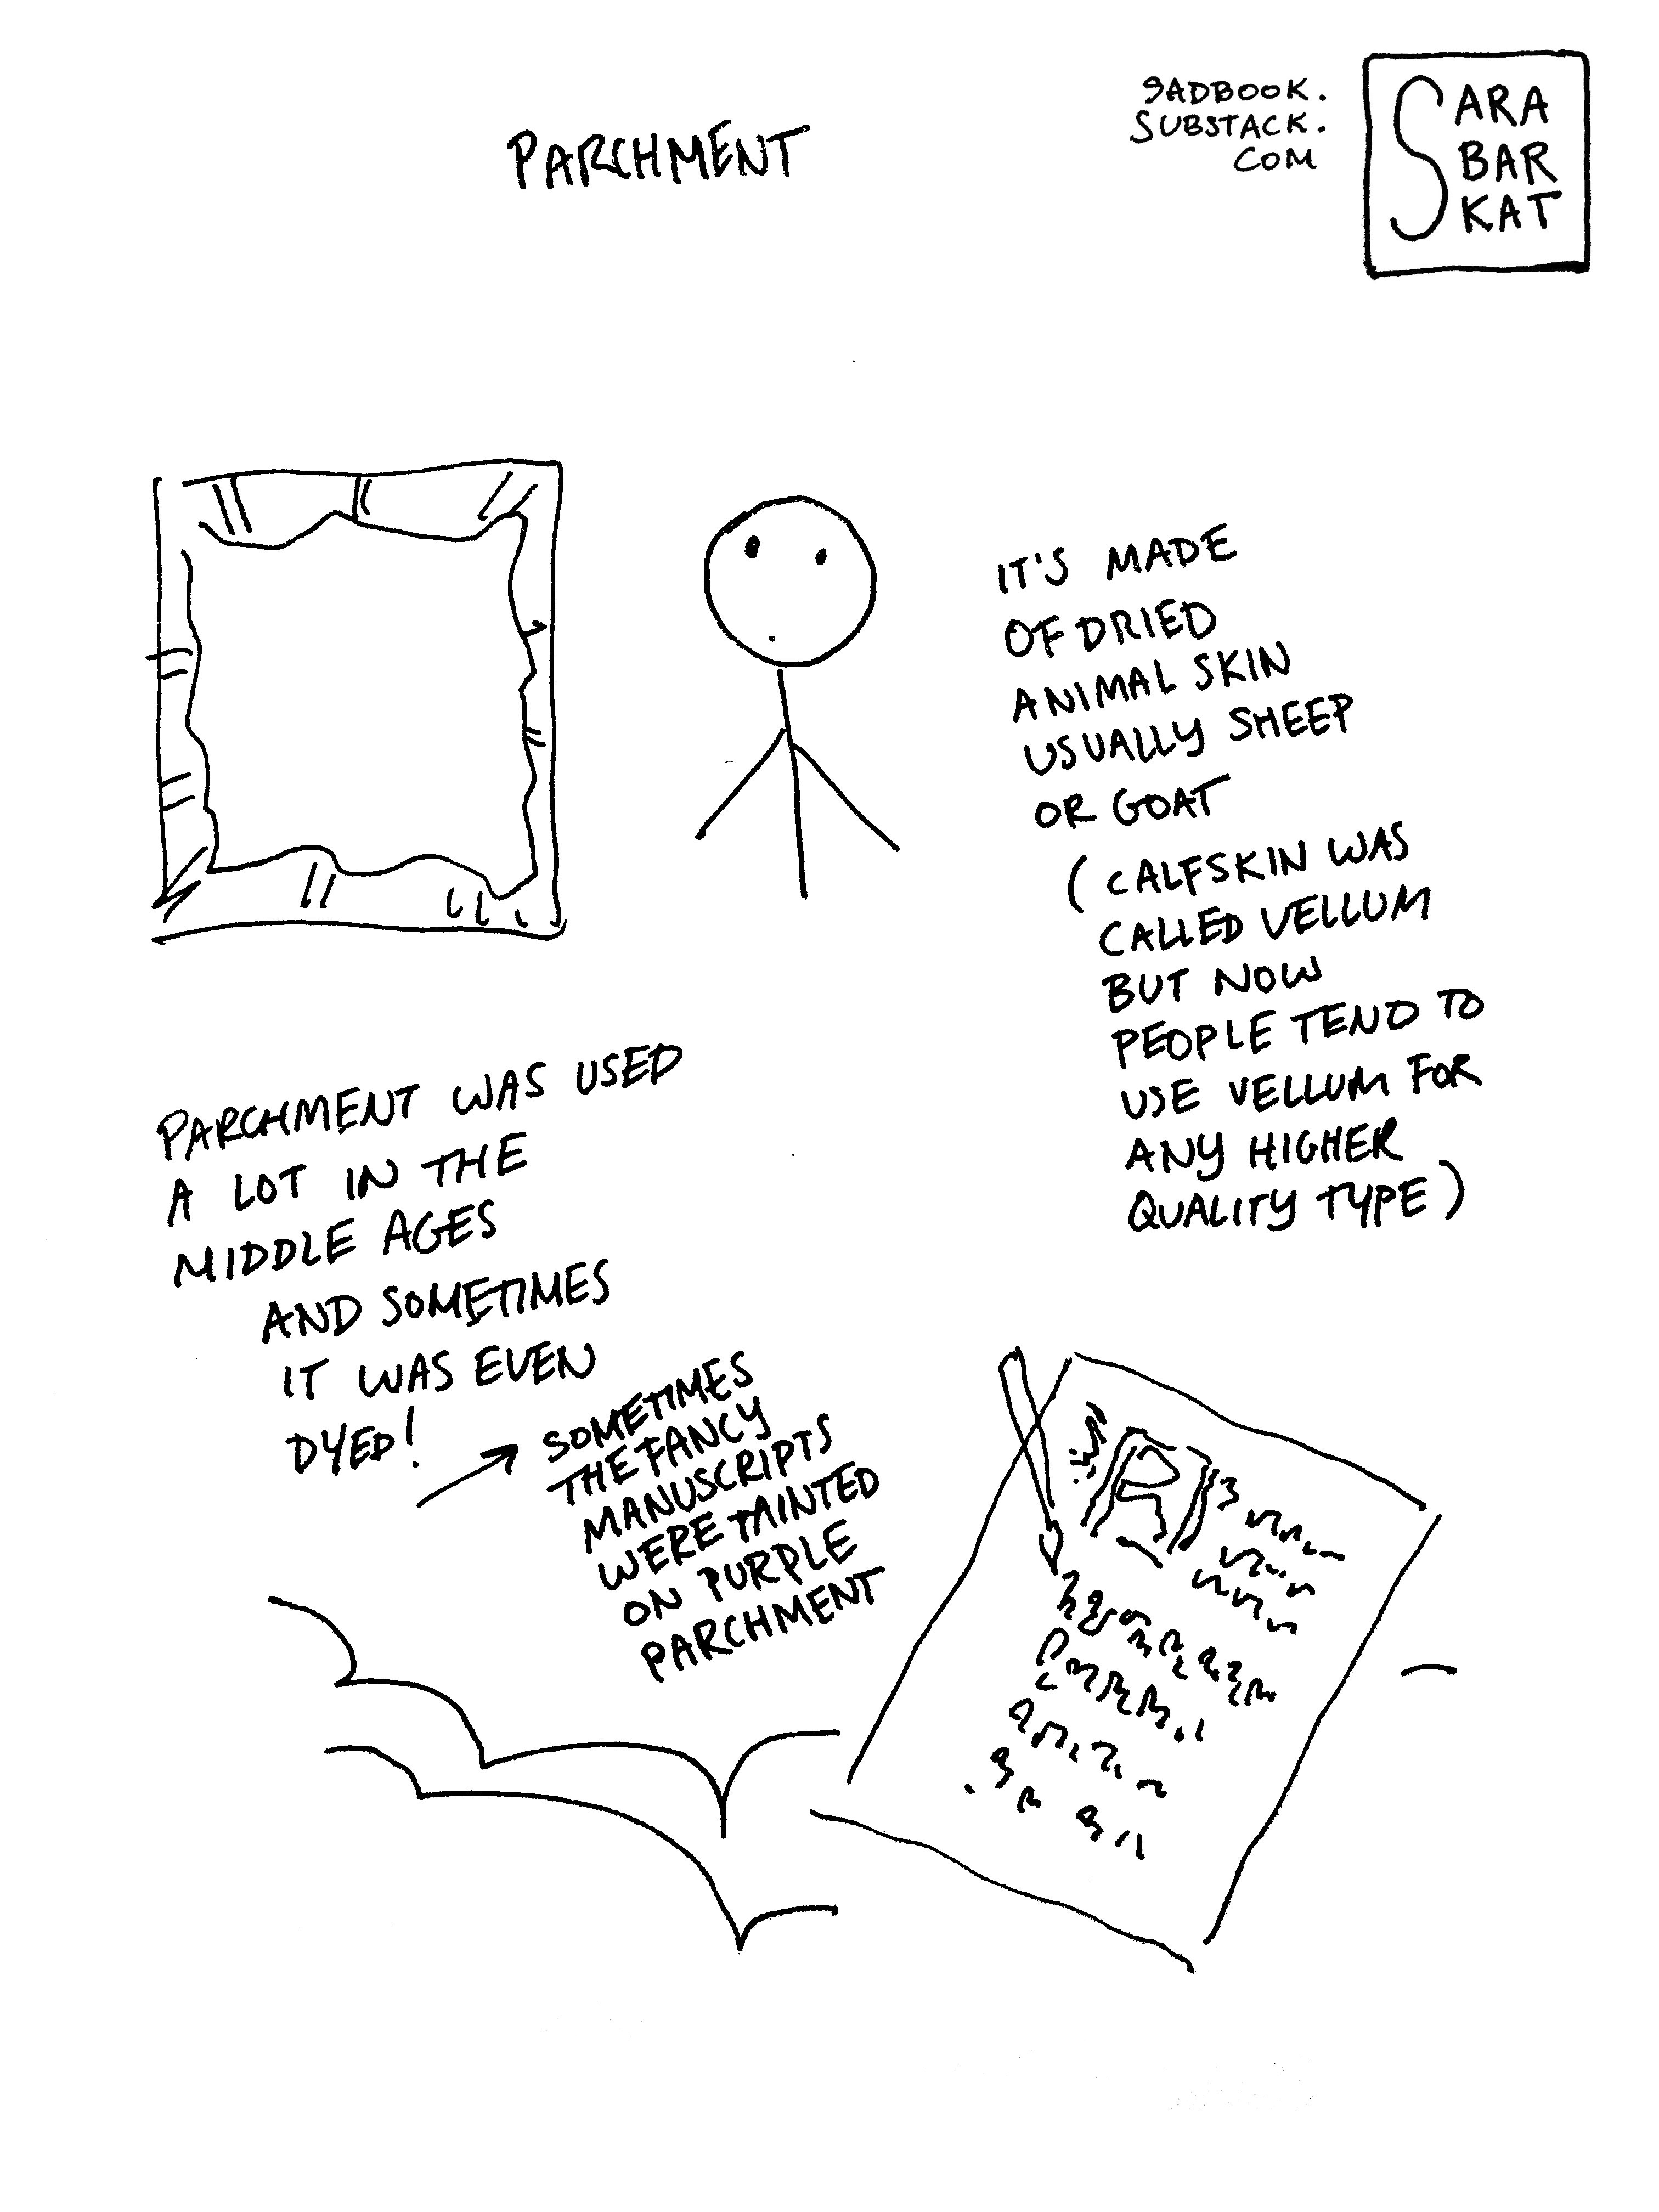 PARCHMENT
SADBOOK.
SUBSTACK.
COM
SARA
BAR
KAT
IT'S MADE
OF DRIED
ANIMAL SKIN
USUALLY SHEEP
OR GOAT
(CALFSKIN WAS
CALLED VELLUM
BUT NOW
PEOPLE TEND TO
USE VELLUM FOR
ANY HIGHER
QUALITY TYPE)
PARCHMENT WAS USED
A LOT IN THE
MIDDLE AGES
AND SOMETIMES
IT WAS EVEN
DYED!
→ SOMETIMES
THE FANCY
MANUSCRIPTS
WERE PAINTED
ON PURPLE
PARCHMENT